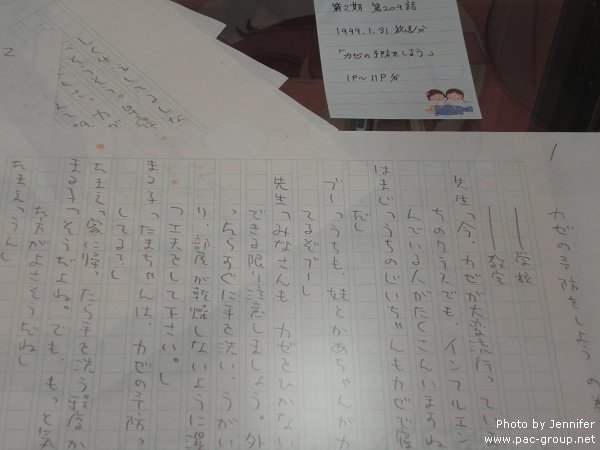 第2期 第209話
1999.1.31 放送分
「カゼの予防をしよう」
1P～11P分
2
1
カゼの予防をしよう の
学校
教室
先生「今、カゼが大変流行ってい
ちのクラスでも、インフルエン
んでいる人がたくさんいますね
はまじ「うちのじいちゃんもカゼで寝
だ」
ブー「うちも、妹とかあちゃんがカ
てるぞブー」
先生「みなさんもカゼをひかない
できる限り注意しましょう。外
ったらすぐに手を洗い、うがい
り、部屋が乾燥しないように
工夫をして下さい。」
まる子「たまちゃんは、カゼの予防っ
してる？」
たまえ「家に帰ったら手を洗う程度か
まる子「そうだよね。でも、もっと気
た方がよさそうだね」
たまえ「うん」
Photo by Jennifer
www.pac-group.net